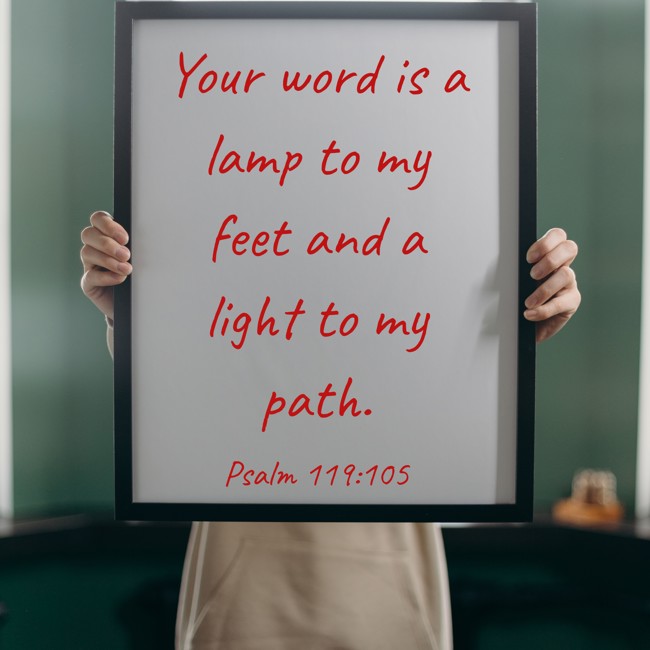 Your word is a
lamp to my
feet and a
light to my
path.
Psalm 119:105